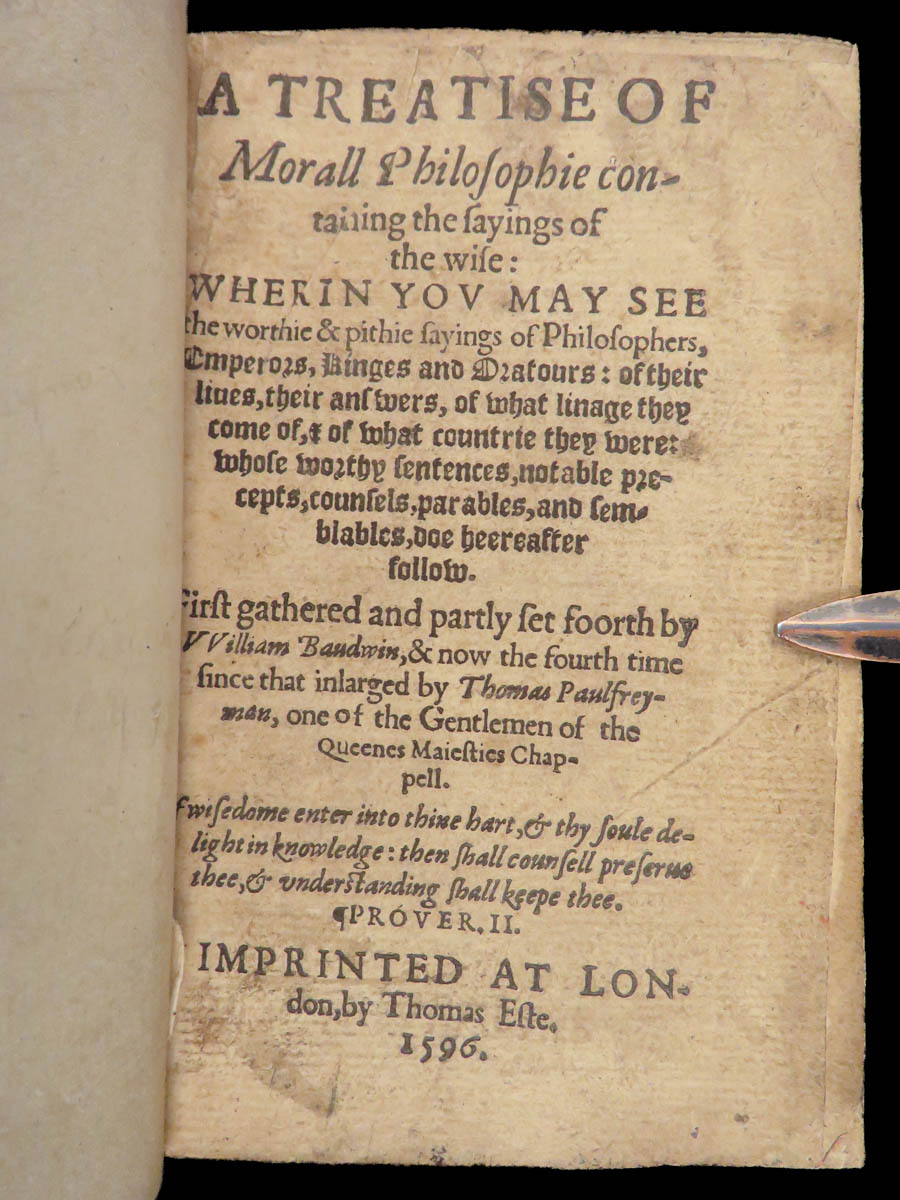 A TREATISE OF
Morall Philoſophie con-
taining the ſayings of
the wiſe:
WHERIN YOV MAY SEE
the worthie & pithie ſayings of Philoſophers,
Emperors, Kinges and Oratours: of their
liues, their anſwers, of what linage they
come of, & of what countrie they were:
whoſe worthy ſentences, notable pre-
cepts, counſels, parables, and ſem-
blables, doe heereafter
follow.
Firſt gathered and partly ſet foorth by
VVilliam Baudwin, & now the fourth time
ſince that inlarged by Thomas Paulfrey-
man, one of the Gentlemen of the
Queenes Maieſties Chap-
pell.
f wiſedome enter into thine hart, & thy ſoule de-
light in knowledge: then ſhall counſell preſerue
thee, & vnderſtanding ſhall keepe thee.
¶PROVER. II.
IMPRINTED AT LON-
don, by Thomas Eſte.
1596.